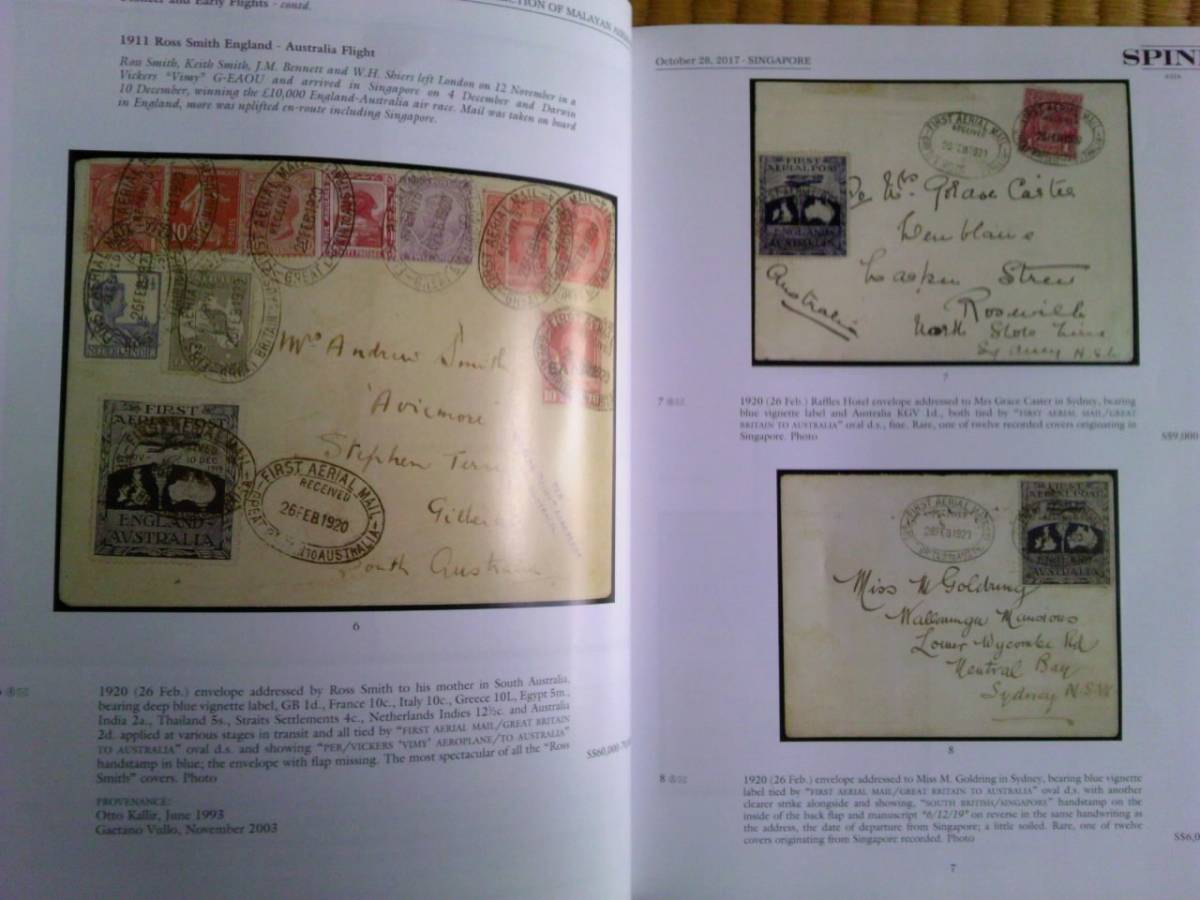 Pioneer and Early Flights - contd.
CTION OF MALAYAN
1911 Ross Smith England - Australia Flight
Ross Smith, Keith Smith, J.M. Bennett and W.H. Shiers left London on 12 November in a
Vickers "Vimy" G-EAOU and arrived in Singapore on 4 December and Darwin
10 December, winning the £10,000 England-Australia air race. Mail was taken on board
in England, more was uplifted en-route including Singapore.
10
NEDERL INDIE
26FEB1920
Mrs Andrew Smith
'Avicmore'
Stephen Terr
South Australia
FIRST
AERIAL POST
10 DEC
1919
ENGLAND-
AUSTRALIA
FIRST AERIAL MAIL
RECEIVED
26FEB1920
GREAT
TO AUSTRALIA
6
1920 (26 Feb.) envelope addressed by Ross Smith to his mother in South Australia,
bearing deep blue vignette label, GB 1d., France 10c., Italy 10c., Greece 10L, Egypt 5m.,
India 2a., Thailand 5s., Straits Settlements 4c., Netherlands Indies 12½c. and Australia
2d. applied at various stages in transit and all tied by "FIRST AERIAL MAIL/GREAT BRITAIN
TO AUSTRALIA" oval d.s. and showing "PER/VICKERS 'VIMY' AEROPLANE/TO AUSTRALIA"
handstamp in blue; the envelope with flap missing. The most spectacular of all the "Ross
Smith" covers. Photo
S$60,000
PROVENANCE:
Otto Kallir, June 1993
Gaetano Vullo, November 2003
October 28, 2017 - SINGAPORE
SPIN
FIRST AERIAL MAIL
RECEIVED
FIRST
AERIAL POST
ENGLAND
AUSTRALIA
Australia
North Shore Line
7
7
1920 (26 Feb.) Raffles Hotel envelope addressed to Mrs Grace Caster in Sydney, bearing
blue vignette label and Australia KGV 1d., both tied by "FIRST AERIAL MAIL/GREAT
BRITAIN TO AUSTRALIA" oval d.s., fine. Rare, one of twelve recorded covers originating in
Singapore. Photo
S$9,000
FIRST
AERIAL POST
AUSTRALIA
Miss M Goldring
Mansions
Lower Wycombe Rd
Neutral Bay
Sydney N.S.W.
8
8
1920 (26 Feb.) envelope addressed to Miss M. Goldring in Sydney, bearing blue vignette
label tied by "FIRST AERIAL MAIL/GREAT BRITAIN TO AUSTRALIA" oval d.s. with another
clearer strike alongside and showing, "SOUTH BRITISH/SINGAPORE" handstamp on the
inside of the back flap and manuscript "6/12/19" on reverse in the same handwriting as
the address, the date of departure from Singapore; a little soiled. Rare, one of twelve
covers originating from Singapore recorded. Photo
S$6,0
7